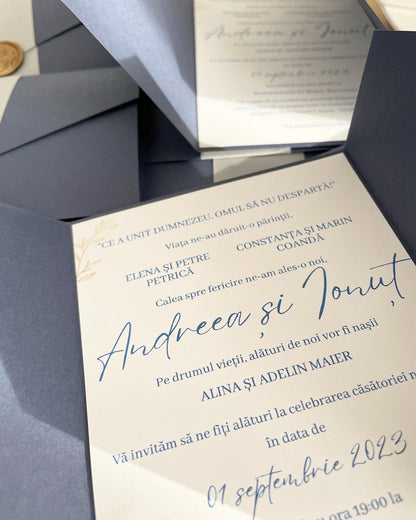 Andreea și Ionuț
01 septembrie 2023
"CE A UNIT DUMNEZEU, OMUL SĂ NU DESPARTĂ!"
Viața ne-au dăruit-o părinții,
ELENA ȘI PETRE PETRICĂ
CONSTANȚA ȘI MARIN COANDĂ
Calea spre fericire ne-am ales-o noi,
Andreea și Ionuț
Pe drumul vieții, alături de noi vor fi nașii
ALINA ȘI ADELIN MAIER
Vă invităm să ne fiți alături la celebrarea căsătoriei
în data de
01 septembrie 2023
ora 19:00 la